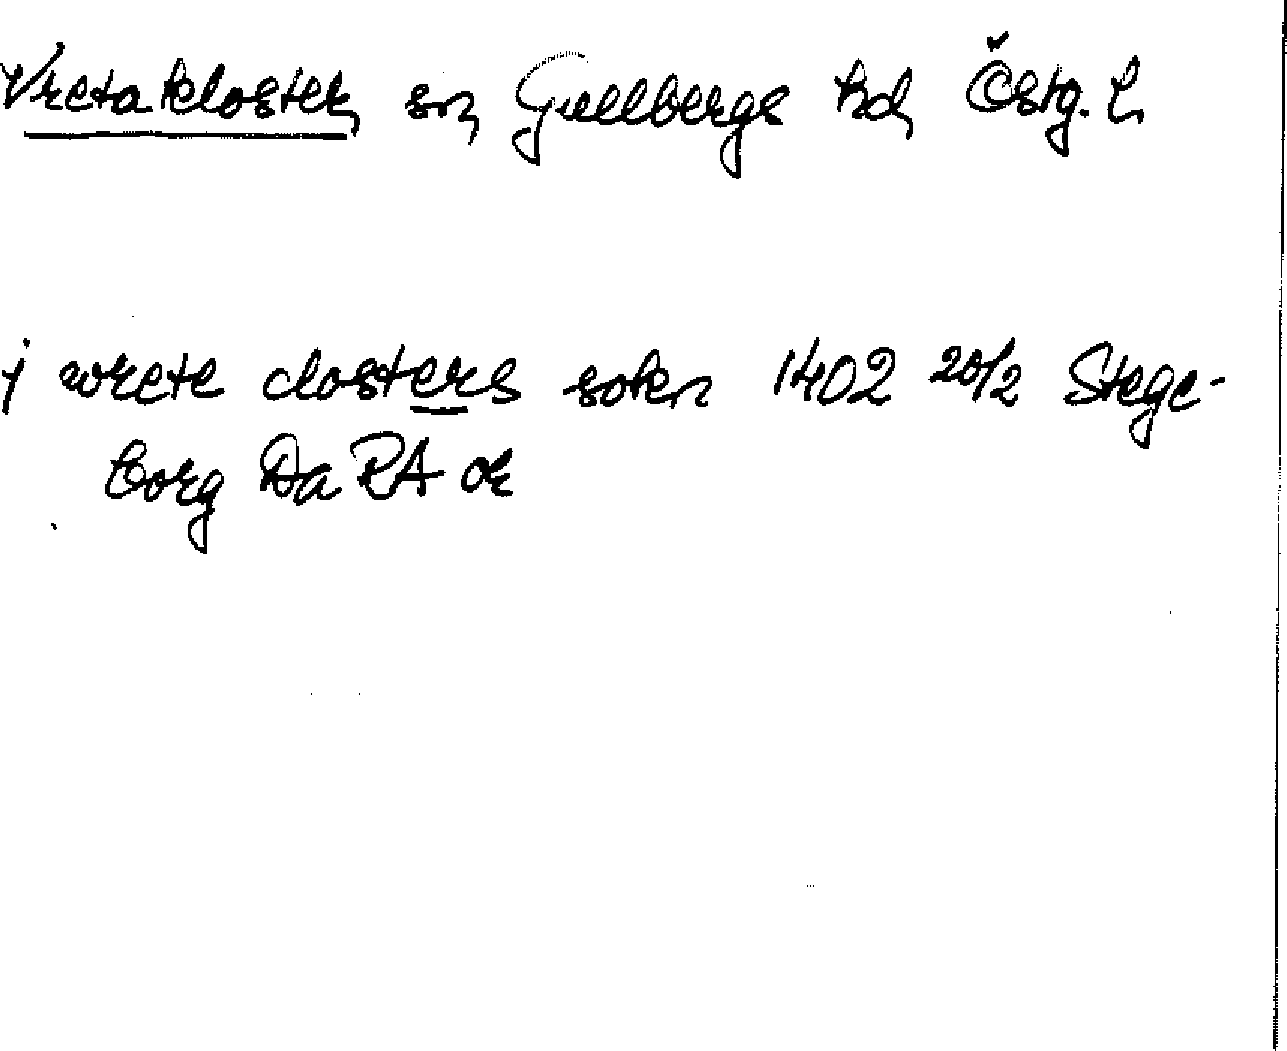 Vreta kloster, sn, Gullbergs hd, Östg. l,
j wrete closters sokn 1402 20/2 Stege-
borg Da RA or